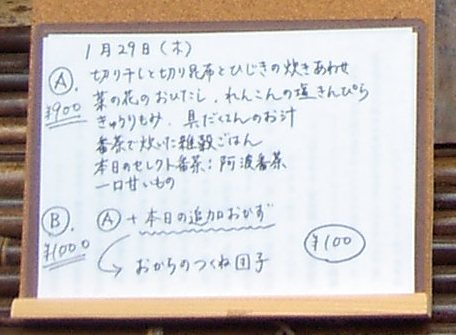 1月29日(木)
Ⓐ 切り干しと切り昆布とひじきの炊きあわせ
¥900 菜の花のおひたし、れんこんの塩きんぴら
きゅうりもみ、具だくさんのお汁
番茶で炊いた雑穀ごはん
本日のセレクト番茶:阿波番茶
一口甘いもの
Ⓑ Ⓐ+本日の追加おかず
¥1000 ¥100
おからのつくね団子